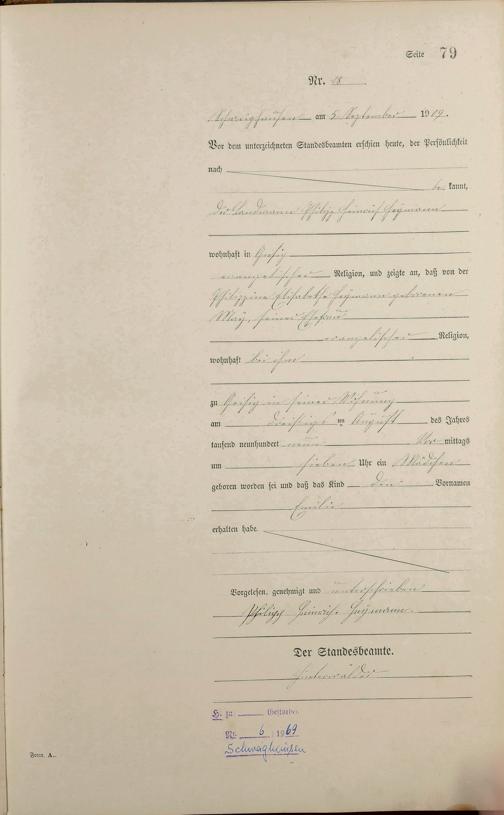 Seite 79
Nr. 18
Schweighausen am 5 September 1909.
Vor dem unterzeichneten Standesbeamten erschien heute, der Persönlichkeit
nach
be kannt,
der Landmann Philipp Heinrich Heymann
wohnhaft in Geisig
evangelischer Religion, und zeigte an, daß von der
Philippine Elisabethe Heymann geborenen
May, seiner Ehefrau
evangelischer Religion,
wohnhaft bei ihm
zu Geisig in seiner Wohnung
am dreißigsten August des Jahres
tausend neunhundert neun Vor mittags
um sieben Uhr ein Mädchen
geboren worden sei und daß das Kind den Vornamen
Emilie
erhalten habe.
Vorgelesen, genehmigt und unterschrieben
Philipp Heinrich Heymann
Der Standesbeamte.
H. zu: Gestorben
Nr. 6 1969
Schwaighausen
Form. A..